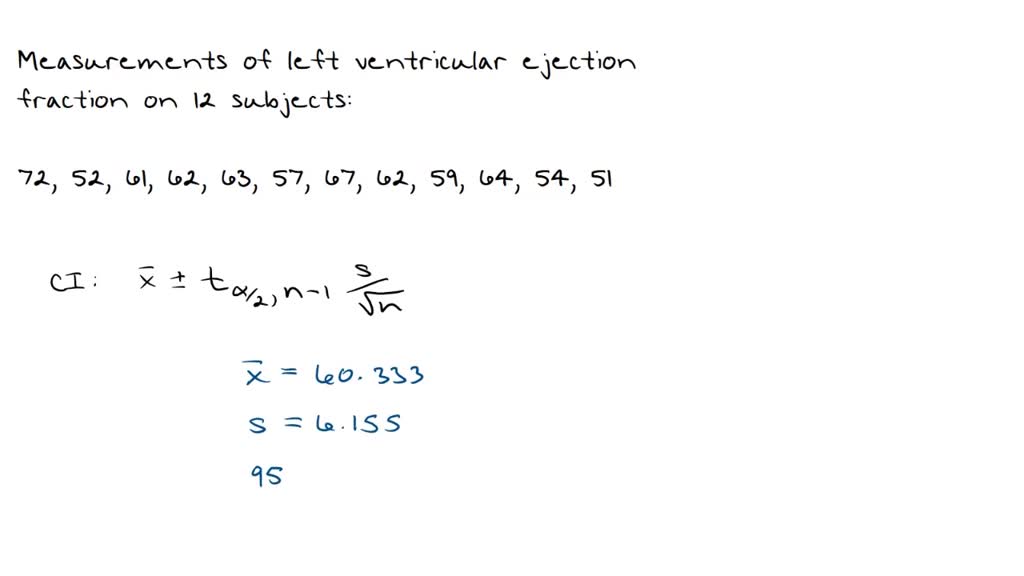 Measurements of left ventricular ejection
fraction on 12 subjects:
72, 52, 61, 62, 63, 57, 67, 62, 59, 64, 54, 51
CI: x̄ ± t α/2, n-1 s/√n
x̄ = 60.333
s = 6.155
95